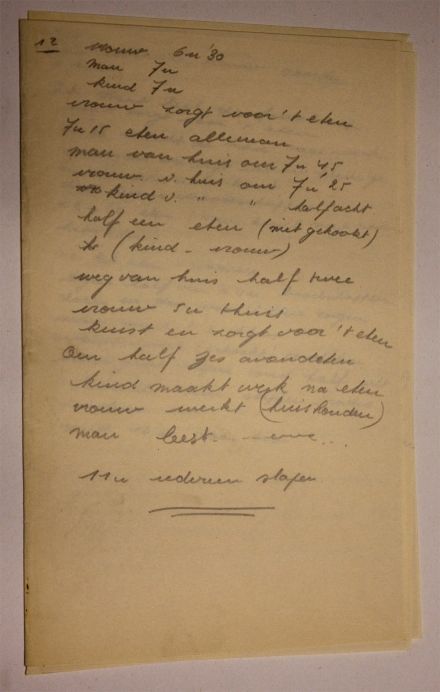 12
vrouw. 6u'30
man 7u
kind 7u
vrouw zorgt voor 't eten
7u 15 eten alleman
man van huis om 7u'45
vrouw. v. huis om 7u'25
kind v. " " halfacht
half een eten (niet gekookt)
(kind - vrouw)
weg van huis half twee
vrouw 5u thuis
kuist en zorgt voor 't eten
Om half zes avondeten
kind maakt werk na eten
vrouw werkt (huishouden)
man leest...
11u iedereen slapen